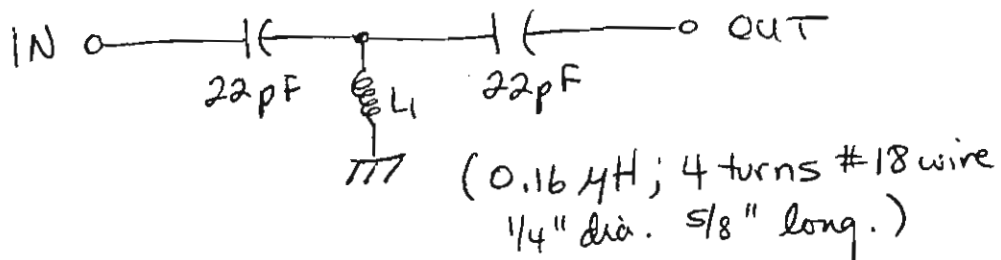 IN OUT
22pF L1 22pF
(0.16 µH; 4 turns #18 wire
1/4" dia. 5/8" long.)